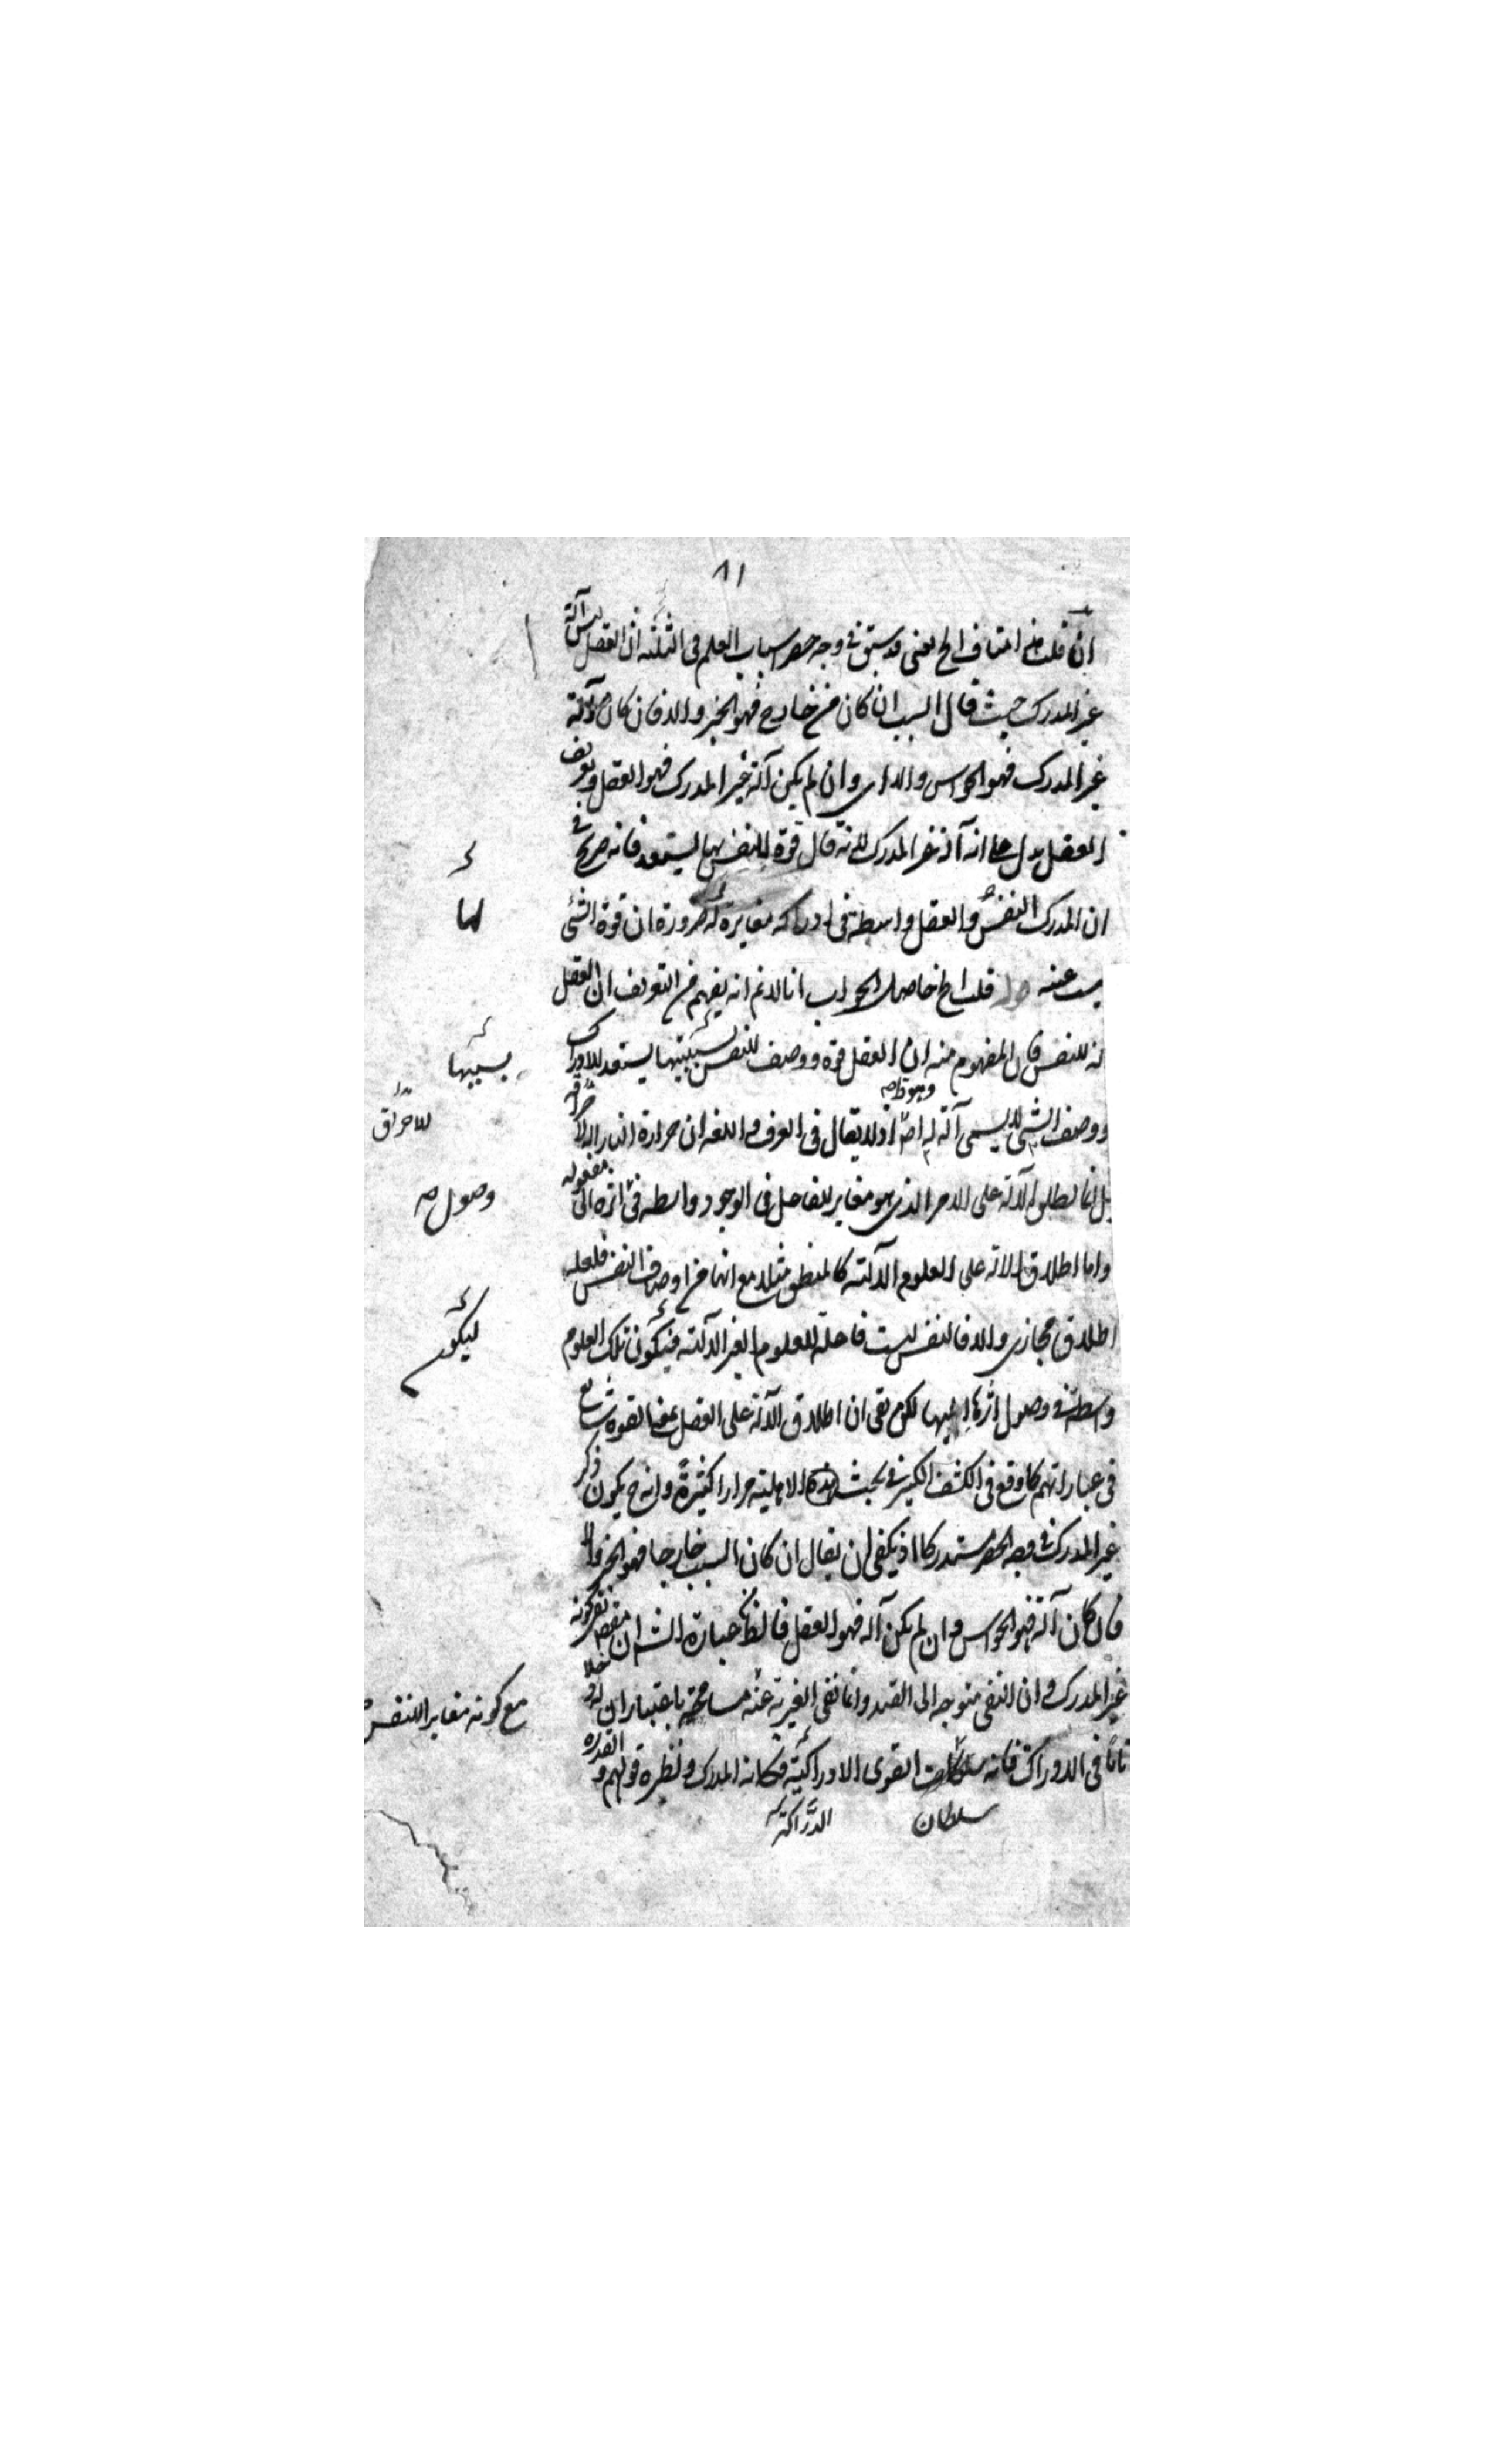 ٨١
ان قلت هذا مناف الخ يعنى قد سبق فى وجه حصر اسباب العلم فى الثلثة ان العقل ليس آلة
غير المدرك حيث قال السبب ان كان من خارج فهو الخبر والا فان كان آلة
غير المدرك فهو الحواس والا اى وان لم يكن آلة غير المدرك فهو العقل وتعريف
العقل يدل على انه آلة غير المدرك لانه قال قوة للنفس بها يستعد فانه صريح فى
ان المدرك النفس والعقل واسطة فى ادراكه مغايرة له ضرورة ان قوة الشئ
ليست عينه قلت الخ حاصل الجواب انا لا نم انه يفهم من التعريف ان العقل
آلة للنفس فان المفهوم منه ان العقل قوة ووصف للنفس بسببها يستعد للادراك
ووصف الشئ لا يسمى آلة له اذ لا يقال فى العرف واللغة ان حرارة النار آلة لاحراقه
وهو ظاهر
بل انما يطلق الآلة على الامر الذى هو مغاير للفاعل فى الوجود واسطة فى اثره الى مفعوله
واما اطلاق الالة على العلوم الآلية كالمنطق مثلا مع انها من اوصاف النفس فلعله
اطلاق مجازى والا فالنفس ليست فاعلة للعلوم الغير الآلية فيكون تلك العلوم
واسطة فى وصول اثرها اليها لكن بقى ان اطلاق الآلة على العقل بمعنى القوة شايع
فى عباراتهم كما وقع فى الكشف الكبير فى بحث هذه الاهلية مرارا كثيرة وانه ح يكون ذكر
غير المدرك فى وجه الحصر مستدركا اذ يكفى ان يقال ان كان السبب خارجا فهو الخبر والا
فان كان آلة فهو الحواس وان لم يكن آلة فهو العقل فالظ عبارة الش ان مقصوده نفى كونه
غير المدرك وان النفى متوجه الى القيد وانما نفى الغيرية عنه مسامحة باعتبار ان له دخلا
تاما فى الادراك فانه سلطان القوى الادراكية فكانه المدرك ونظيره قولهم القدرة
لها
بسببها
للاحراق
وصول
ليكون
مع كونه مغايرا للنفس
سلطان
الدراكة